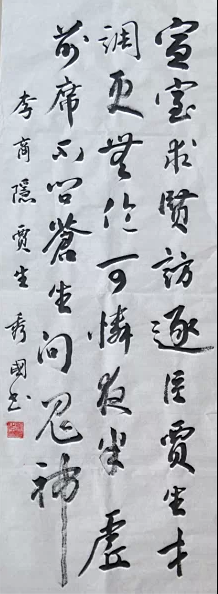 宣室求贤访逐臣贾生才
调更无伦可怜夜半虚
前席不问苍生问鬼神
李商隐贾生 秀国书